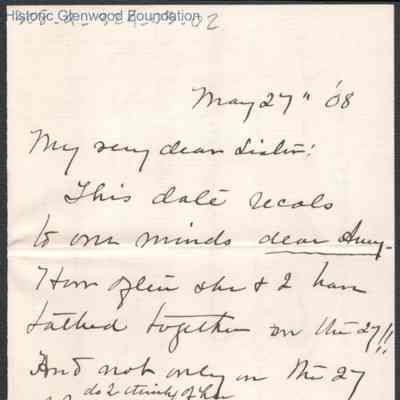 Historic Glenwood Foundation
May 27" '08
My very dear Sister!
This date recals
to our minds dear Amy-
How often she & I have
talked together on the 27!!
And not only on the 27
do I think of her